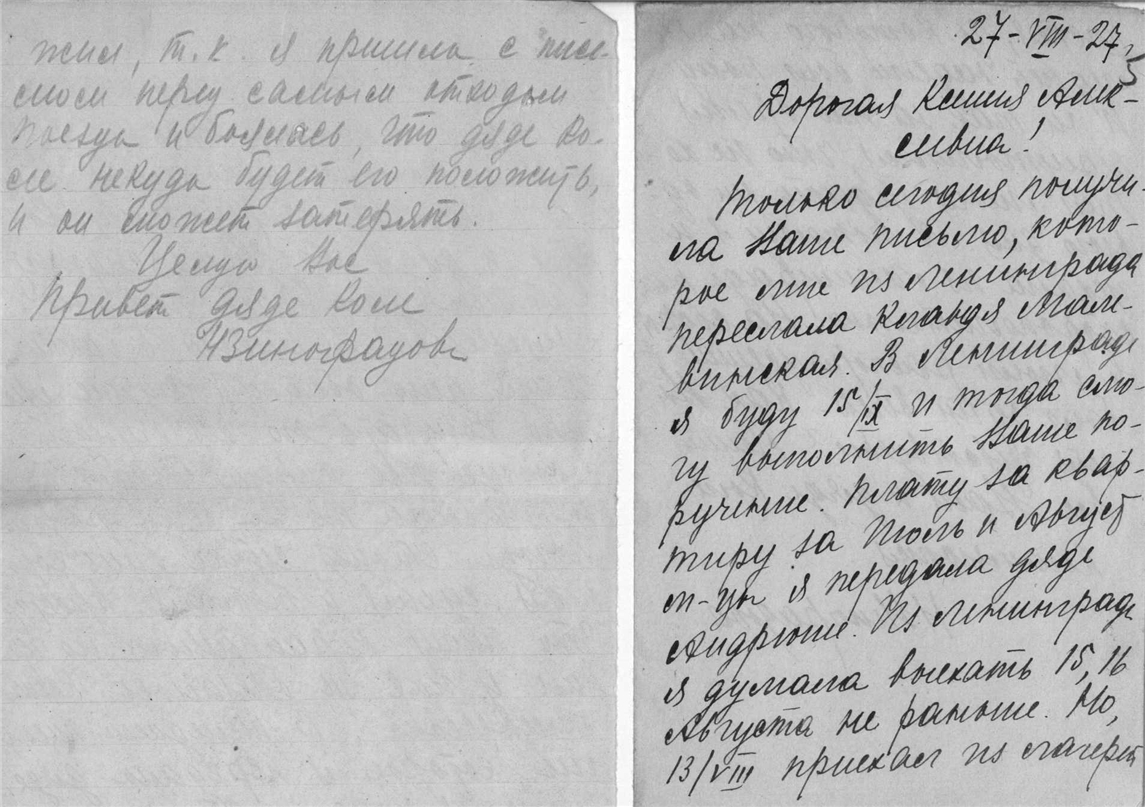 жил, т.к. я пришла с пись-
мом перед самым отходом
поезда и боялась, что дяде Ко-
ле некуда будет его положить,
и он сможет затерять.
Целую Вас
Привет дяде Коле
НВиноградова
27-VIII-27
Дорогая Ксения Алек-
сеевна!
Только сегодня получи-
ла Ваше письмо, кото-
рое мне из Ленинграда
переслала Клавдя
В Ленинграде
я буду 15/IX и тогда смо-
гу выполнить Ваше по-
ручение. Плату за квар-
тиру за Июль и Август
м-цы я передала дяде
Андрюше. Из Ленинграда
я думала выехать 15, 16
Августа не раньше. Но,
13/VIII приехал из лагеря